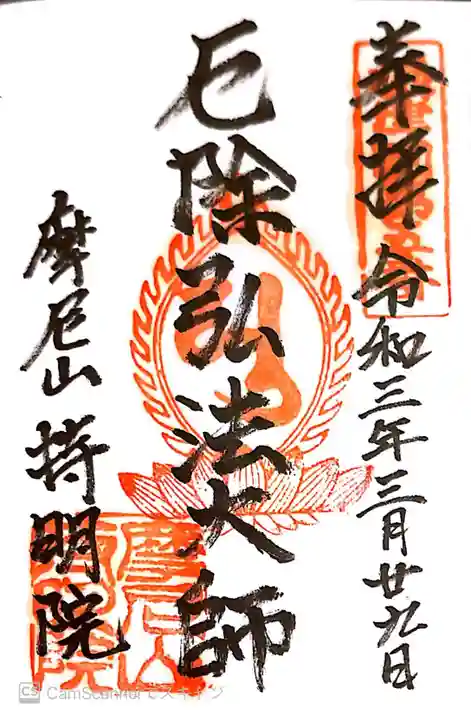 奉拝 令和三年三月廿九日
厄除弘法大師
摩尼山 持明院
CS CamScannerでスキャン